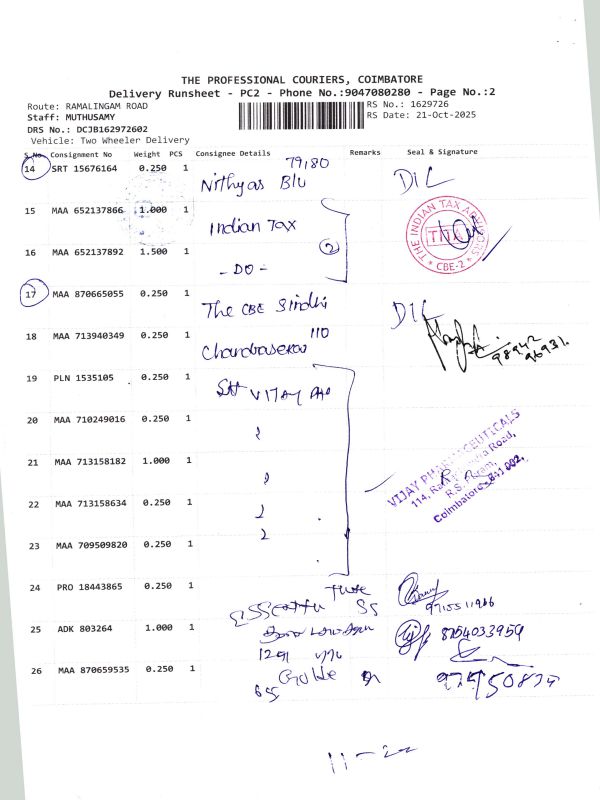 THE PROFESSIONAL COURIERS, COIMBATORE
Delivery Runsheet - PC2 - Phone No.:9047080280 - Page No.:2
Route: RAMALINGAM ROAD
Staff: MUTHUSAMY
DRS No.: DCJB162972602
Vehicle: Two Wheeler Delivery
RS No.: 1629726
RS Date: 21-Oct-2025
S.No. Consignment No Weight PCS Consignee Details Remarks Seal & Signature
14 SRT 15676164 0.250 1 Nithyas Blu 79,80 DIL
15 MAA 652137866 1.000 1 Indian Tax
THE INDIAN TAX ADVISORS
TNA
CBE-2
16 MAA 652137892 1.500 1 - DO - 2
17 MAA 870665055 0.250 1 The CBE Sindhi DIL
18 MAA 713940349 0.250 1 Chandrasekar 110 98942 96931
19 PLN 1535105 0.250 1 VIJAY
20 MAA 710249016 0.250 1
21 MAA 713158182 1.000 1
VIJAY PHARMACEUTICALS
114, Road,
R.S. Puram,
Coimbatore-641 002.
22 MAA 713158634 0.250 1
23 MAA 709509820 0.250 1
24 PRO 18443865 0.250 1
25 ADK 803264 1.000 1 8754033959
26 MAA 870659535 0.250 1